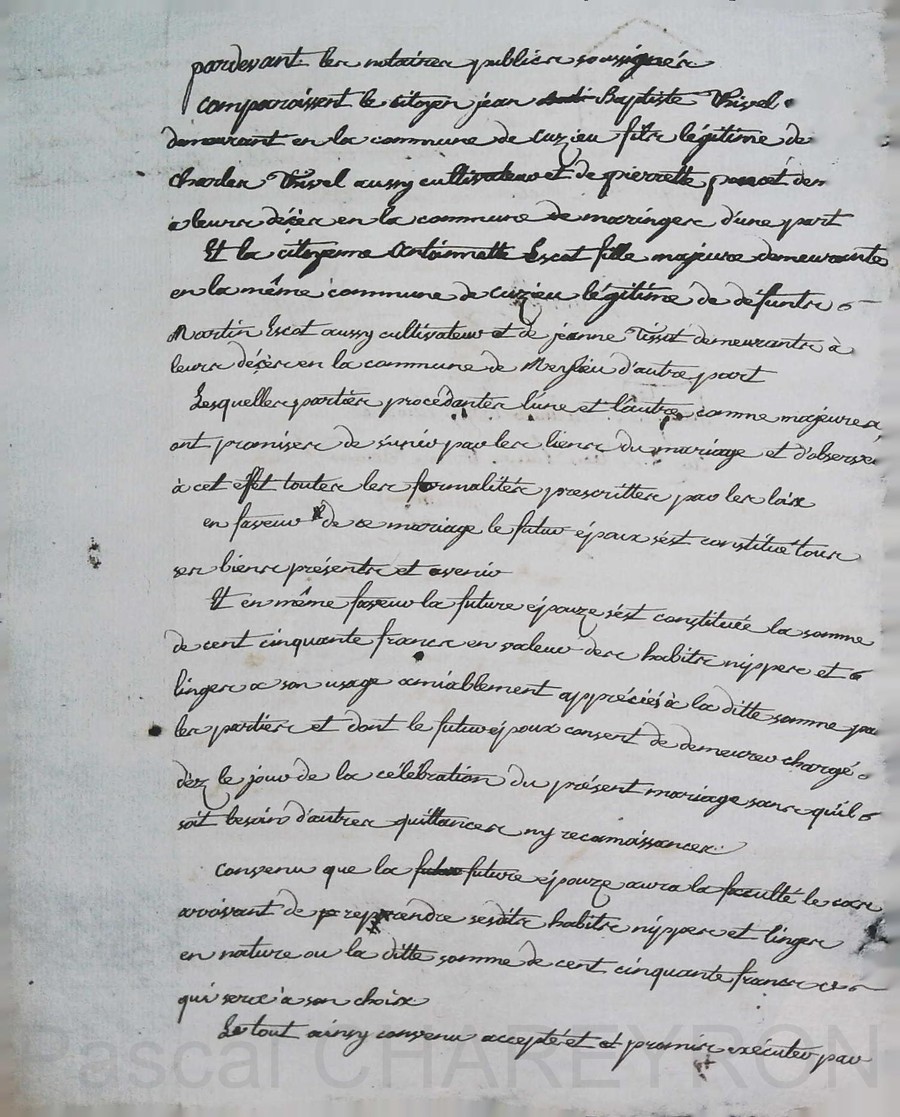 pardevant les notaires publics soussignés
comparoissent le citoyen jean Baptiste Thivel
demeurant en la commune de Cuzieu fils légitime de
Charles Thivel aussy cultivateur et de pierrette poncet dem
a leurs décès en la commune de maringes d'une part
Et la citoyenne Antoinette Escot fille majeure demeurante
en la même commune de cuzieu légitime de défunts
Martin Escot aussy cultivateur et de jeanne Tissot demeurants à
leurs décès en la commune de Meylieu d'autre part
Lesquelles parties procédantes l'une et l'autre comme majeures,
ont promises de s'unir par les liens du mariage et d'observer
à cet effet toutes les formalités prescrittes par les loix
en faveur de ce mariage le futur époux s'est constitué tous
ses biens présents et avenir
Et en même faveur la future épouze s'est constituée la somme
de cent cinquante francs en valeur des habits nippes et
linges a son usage amiablement appréciés à la ditte somme par
les parties et dont le futur époux consent de demeurer chargé
dèz le jour de la célébration du présent mariage sans qu'il
soit besoin d'autres quittances ny reconnoissances
convenu que la futur future épouze aura la faculté le cas
arrivant de reprendre sesdits habits nippes et linges
en nature ou la ditte somme de cent cinquante francs ce
qui sera à son choix
Le tout ainsy convenu accepté et et promis exécuter par
Pascal CHAREYRON